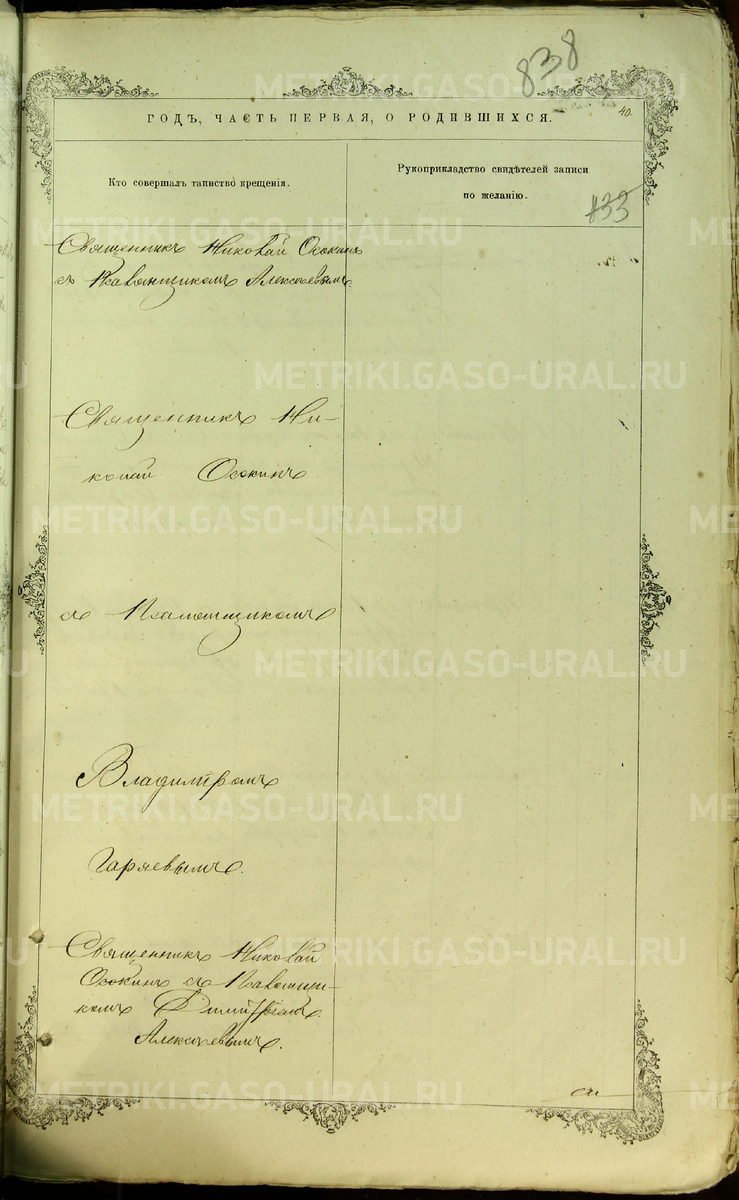 838
ГОДЪ, ЧАСТЬ ПЕРВАЯ, О РОДИВШИХСЯ.
40.
Кто совершалъ таинство крещенія.
Рукоприкладство свидѣтелей записи
по желанію.
433
Священникъ Николай Осокинъ
съ Псаломщикомъ Алексѣевымъ
Священникъ Ни-
колай Осокинъ
съ Псаломщикомъ
Владиміромъ
Гаряевымъ.
Священникъ Николай
Осокинъ съ Псаломщи-
комъ Димитріемъ
Алексѣевымъ.
METRIKI.GASO-URAL.RU